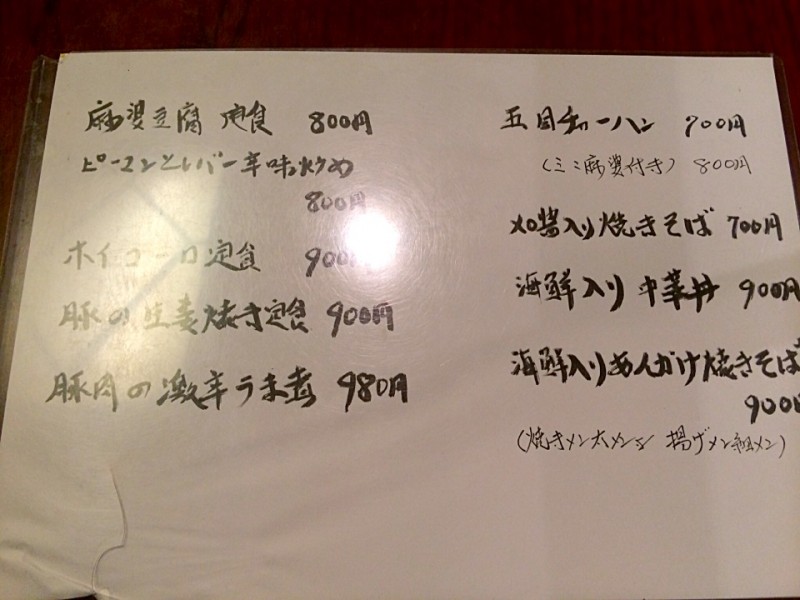 麻婆豆腐 定食 800円
ピーマンとレバー辛味炒め
800円
ホイコーロ定食 900円
豚の生姜焼き定食 900円
豚肉の激辛うま煮 980円
五目チャーハン 700円
(ミニ麻婆付き) 800円
XO醤入り焼きそば 700円
海鮮入り中華丼 900円
海鮮入りあんかけ焼きそば
900円
(焼きメン太メン 揚げメン細メン)